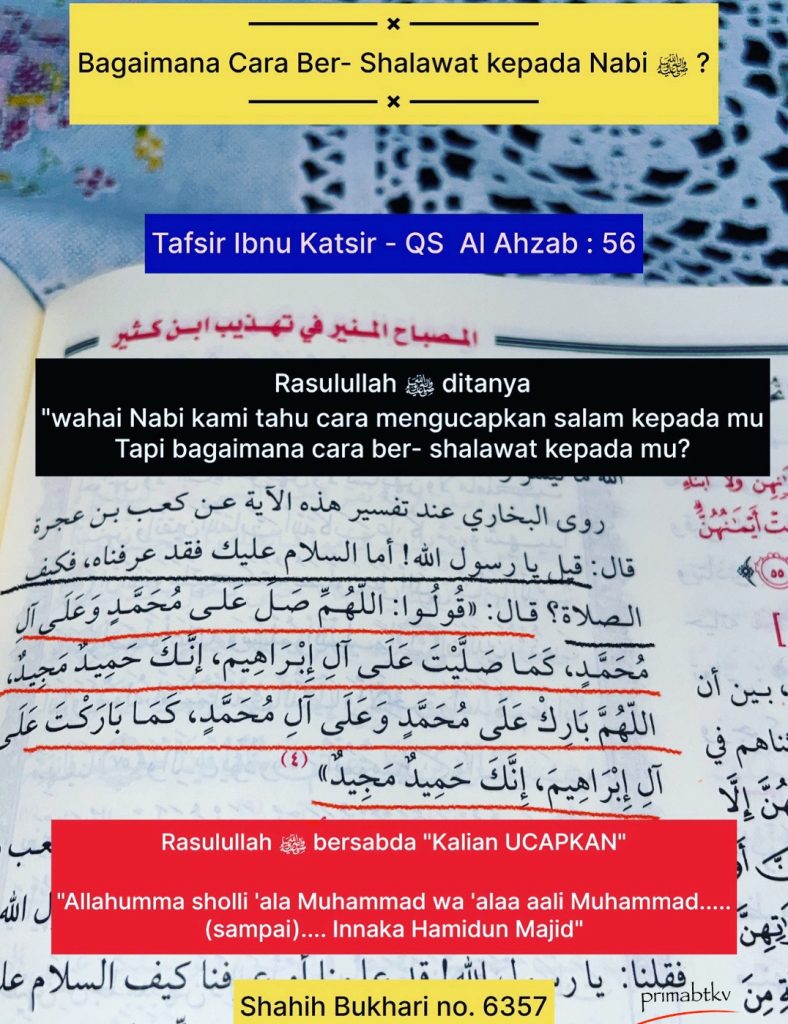 Bagaimana Cara Ber- Shalawat kepada Nabi ﷺ ?
Tafsir Ibnu Katsir - QS Al Ahzab : 56
المصباح المنير في تهذيب ابن كثير
Rasulullah ﷺ ditanya
"wahai Nabi kami tahu cara mengucapkan salam kepada mu
Tapi bagaimana cara ber- shalawat kepada mu?
روى البخاري عند تفسير هذه الآية عن كعب بن عجرة
قال: قيل يا رسول الله! أما السلام عليك فقد عرفناه، فكيف
الصلاة؟ قال: «قُولُوا: اللَّهُمَّ صَلِّ عَلَى مُحَمَّدٍ وَعَلَى آلِ
مُحَمَّدٍ، كَمَا صَلَّيْتَ عَلَى آلِ إِبْرَاهِيمَ، إِنَّكَ حَمِيدٌ مَجِيدٌ،
اللَّهُمَّ بَارِكْ عَلَى مُحَمَّدٍ وَعَلَى آلِ مُحَمَّدٍ، كَمَا بَارَكْتَ عَلَى
آلِ إِبْرَاهِيمَ، إِنَّكَ حَمِيدٌ مَجِيدٌ» (٤)
، بين أن
هُنَّ إِلَّا
Rasulullah ﷺ bersabda "Kalian UCAPKAN"
"Allahumma sholli 'ala Muhammad wa 'alaa aali Muhammad.....
(sampai).... Innaka Hamidun Majid"
فقلنا: يا رسول الله! قد علمنا أو عرفنا كيف السلام
Shahih Bukhari no. 6357
primabtkv